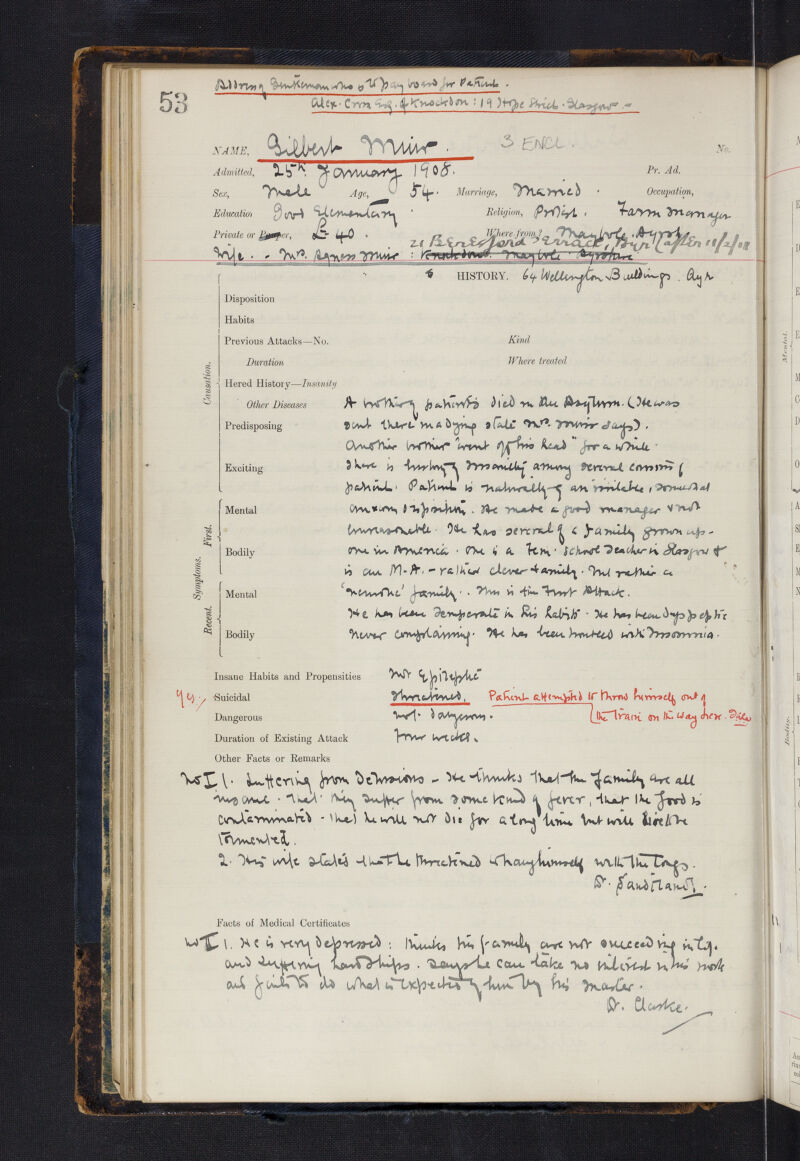 53
Address of Gentleman who is to pay board for Patient.
Alex. Cross Esq. of Knockdon: 19 Hope Street. Glasgow -
NAME, Gilbert Muir. 3 ENCL. No.
Admitted, 25th January 1908. Pr. Ad.
Sex, Male Age, 54. Marriage, Married. Occupation,
Education Good Elementary. Religion, Protest. Farm Manager
Private or Pauper, £40. Where from? Maybole. Ayrsh.
21 Beresford Terrace, Ayr (after 18/2/08
Wife. - Mrs. Agness Muir: Knockdon Maybole Ayrshire
HISTORY. 64 Wellington Buildings. Ayr
Causation.
Disposition
Habits
Previous Attacks—No. Kind
Duration Where treated
Hered History—Insanity
Other Diseases A brother of patient's died in the Asylum. (He was
Predisposing sent there in a dying state Mrs. Muir says).
Another brother "went off his head" for a while.
Exciting There is history of insanity among several cousins of
patient. Patient is naturally of an irritable, somewhat
Symptoms. First.
Mental anxious disposition. He made a good manager & not
unreasonable. He has several of a family grown up -
Bodily one in America. One is a Fem. School Teacher in Glasgow &
is an M.A. - rather clever family. But rather a
Recent.
Mental 'neurotic' family. This is the First Attack.
He has been Temperate in his habits. He has been dyspeptic
Bodily never complaining. He has been troubled with Insomnia.
Insane Habits and Propensities Not Epileptic
Yes. Suicidal Threatened. Patient attempted to throw himself out of
Dangerous not dangerous. the Train on the way here.
Duration of Existing Attack Four weeks.
Other Facts or Remarks
No I 1. Suffering from Delusions - He thinks that the family are all
insane. That they suffer from some kind of fever, that the food is
contaminated - that he will not die for a long time but will be
tormented.
2. His wife states that he threatened to hang himself with the tongs.
Dr. Sandilands.
Facts of Medical Certificates
No II 1. He is very depressed: thinks his family are not succeeding in life
and suffering hardships. Says he can take no interest in his work
and fails to do what is expected of him by his master.
Dr. Clarke.